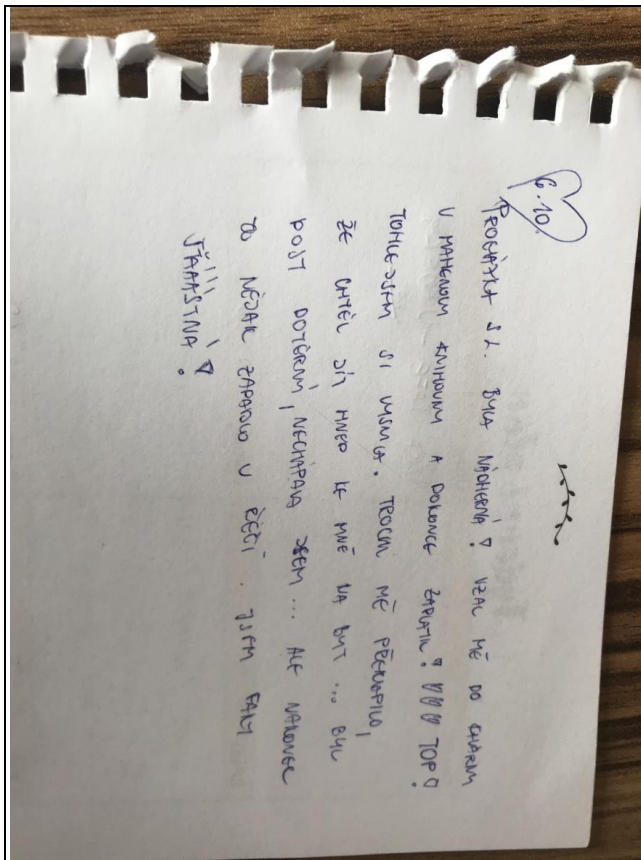 6.10.
PROCHÁZKA S L. BYLA NÁDHERNÁ! VZAL MĚ DO KAVÁRNY
V MAHENOVY KNIHOVNY A DOKONCE ZAPLATIL! TOP!
TOHLE JSEM SI UŽILA. TROCHU MĚ PŘEKVAPILO,
ŽE CHTĚL JÍT HNED KE MNĚ NA BYT ... BYL
DOST DOTĚRNÝ, NECHÁPALA JSEM ... ALE NAKONEC
TO NĚJAK ZAPADLO V ŘEČI. JSEM FAKT
ŠŤAAASTNÁ!